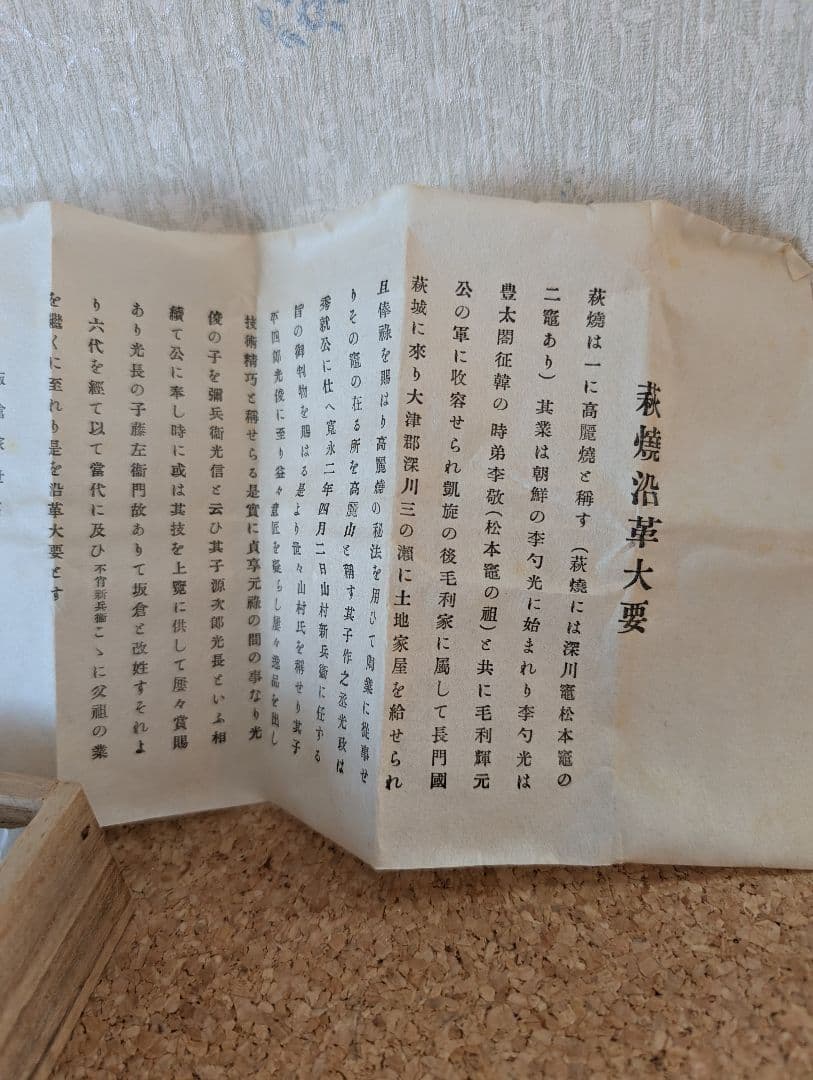 萩燒沿革大要
萩燒は一に高麗燒と稱す（萩燒には深川竈松本竈の
二竈あり）其業は朝鮮の李勺光に始まれり李勺光は
豊太閤征韓の時弟李敬（松本竈の祖）と共に毛利輝元
公の軍に收容せられ凱旋の後毛利家に屬して長門國
萩城に來り大津郡深川三の瀨に土地家屋を給せられ
且俸祿を賜はり高麗燒の秘法を用ひて陶業に從事せ
りその竈の在る所を高麗山と稱す其子作之丞光政は
秀就公に仕へ寬永二年四月二日山村新兵衞に任する
旨の御判物を賜はる是より世々山村氏を稱せり其子
平四郎光俊に至り益々意匠を凝らし屢々逸品を出し
技術精巧と稱せらる是實に貞享元祿の間の事なり光
俊の子を彌兵衞光信と云ひ其子源次郎光長といふ相
續て公に奉し時に或は其技を上覽に供して屢々賞賜
あり光長の子藤左衞門故ありて坂倉と改姓すそれよ
り六代を經て以て當代に及ひ不肖新兵衞こゝに父祖の業
を繼くに至れり是を沿革大要とす